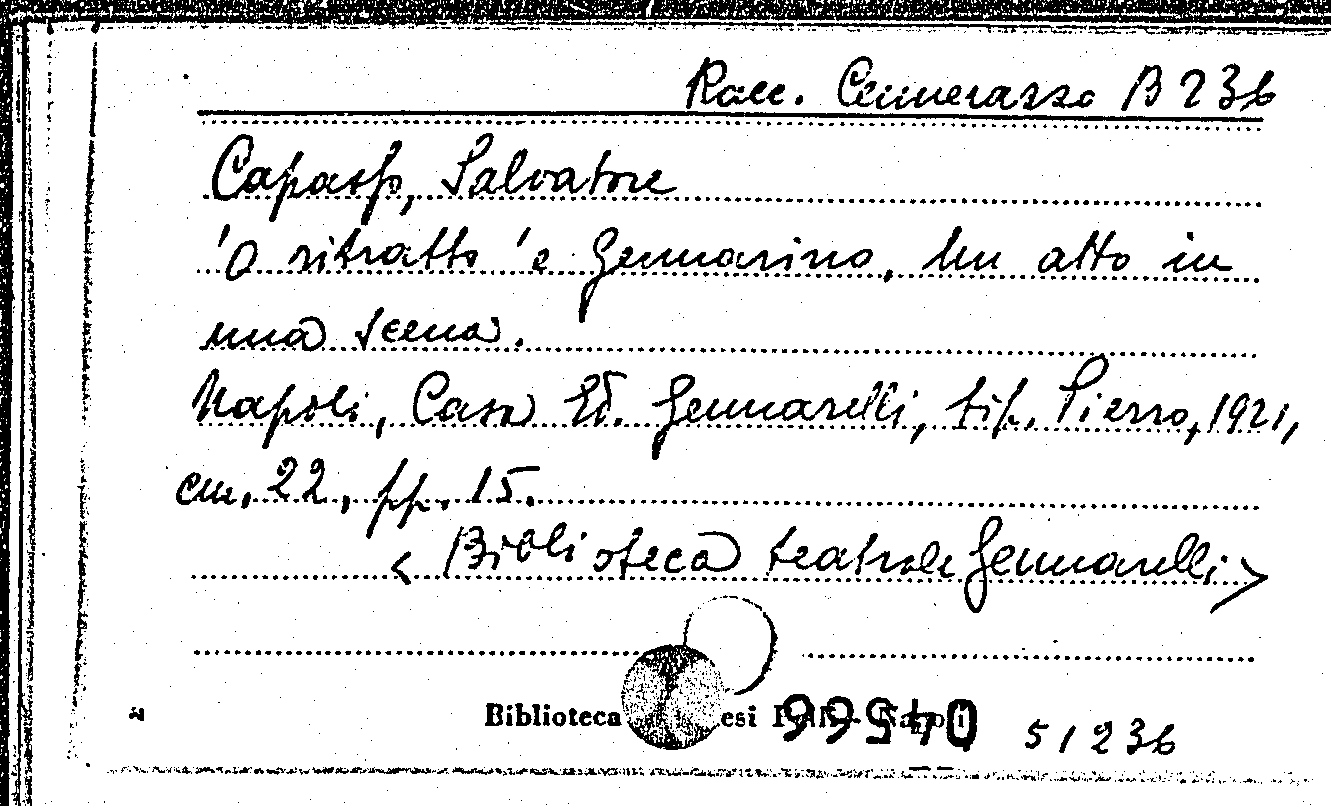 Racc. Cennerazzo B 236
Capasso, Salvatore
'O ritratto 'e Gennarino, Un atto in
una scena.
Napoli, Casa Ed. Gennarelli, tip. Pierro, 1921,
cm. 22, pp. 15.
< Biblioteca teatrale Gennarelli >
Biblioteca
04566
51236